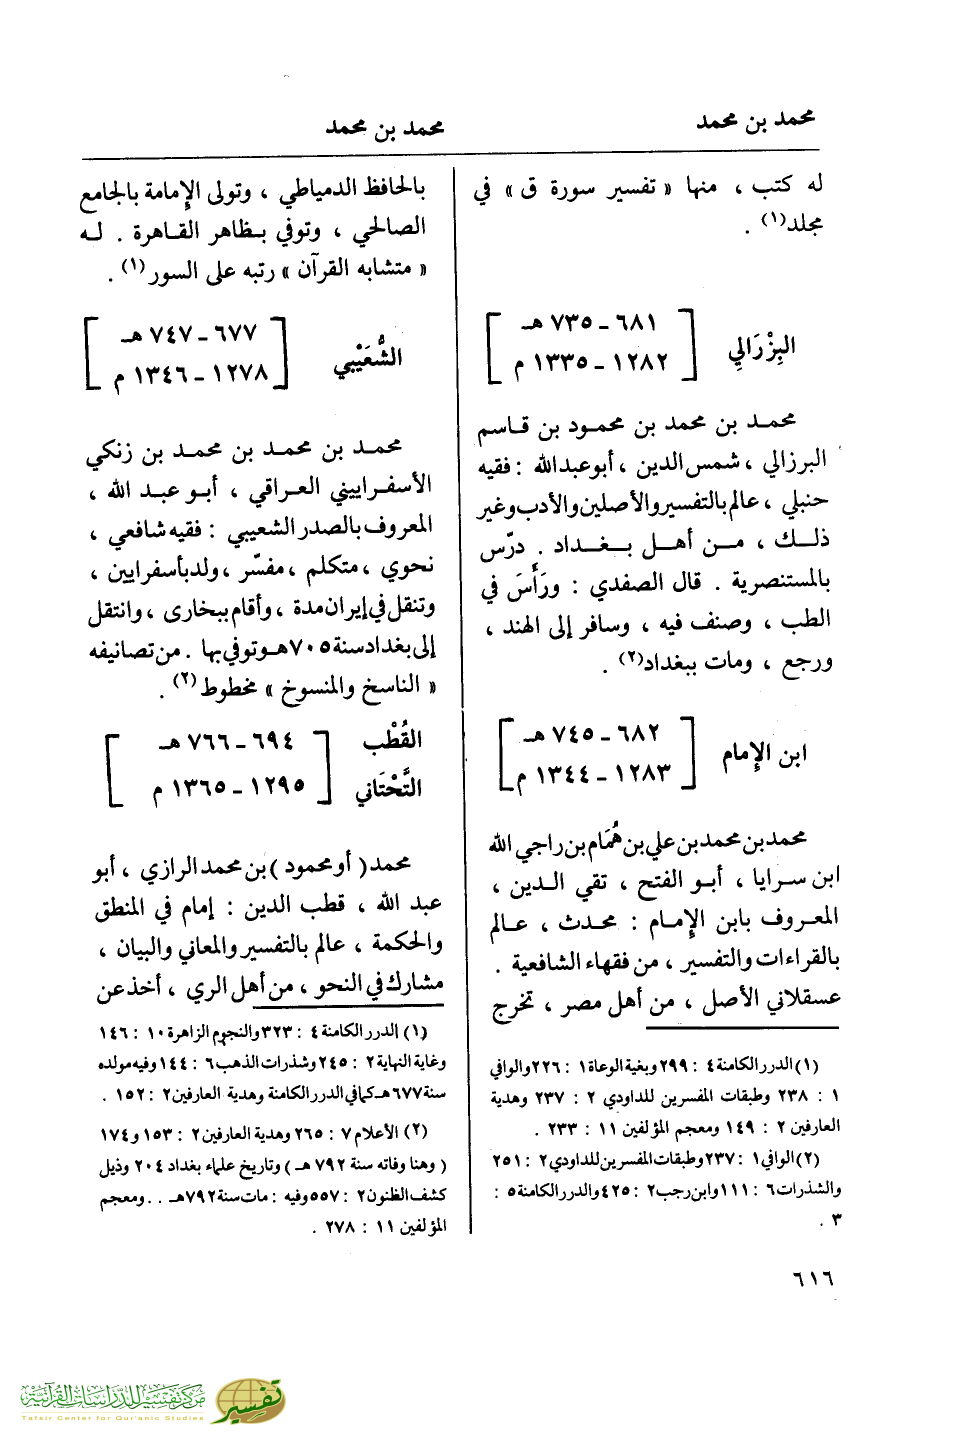 محمد بن محمد
محمد بن محمد
له كتب ، منها « تفسير سورة ق » في
مجلد(١) .
البِرْزَالي
٦٨١ – ٧٣٥ هـ
١٢٨٢ – ١٣٣٥ م
محمد بن محمد بن محمود بن قاسم
البرزالي ، شمس الدين ، أبو عبد الله : فقيه
حنبلي ، عالم بالتفسير والأصلين والأدب وغير
ذلك ، من أهل بغداد . درّس
بالمستنصرية . قال الصفدي : ورَأَسَ في
الطب ، وصنف فيه ، وسافر إلى الهند ،
ورجع ، ومات ببغداد(٢) .
ابن الإمام
٦٨٢ – ٧٤٥ هـ
١٢٨٣ – ١٣٤٤ م
محمد بن محمد بن علي بن هُمَام بن راجي الله
ابن سرايا ، أبو الفتح ، تقي الدين ،
المعروف بابن الإمام : محدث ، عالم
بالقراءات والتفسير ، من فقهاء الشافعية .
عسقلاني الأصل ، من أهل مصر ، تخرج
(١) الدرر الكامنة ٤ : ٢٩٩ وبغية الوعاة ١ : ٢٢٦ والوافي
١ : ٢٣٨ وطبقات المفسرين للداودي ٢ : ٢٣٧ وهدية
العارفين ٢ : ١٤٩ ومعجم المؤلفين ١١ : ٢٣٣ .
(٢) الوافي ١ : ٢٣٧ وطبقات المفسرين للداودي ٢ : ٢٥١
والشذرات ٦ : ١١١ وابن رجب ٢ : ٤٢٥ والدرر الكامنة ٥ :
٣ .
بالحافظ الدمياطي ، وتولى الإمامة بالجامع
الصالحي ، وتوفي بظاهر القاهرة . له
« متشابه القرآن » رتبه على السور(١) .
الشُّعَيْبي
٦٧٧ – ٧٤٧ هـ
١٢٧٨ – ١٣٤٦ م
محمد بن محمد بن محمد بن زنكي
الأسفراييني العراقي ، أبو عبد الله ،
المعروف بالصدر الشعيبي : فقيه شافعي ،
نحوي ، متكلم ، مفسّر ، ولد بأسفرايين ،
وتنقل في إيران مدة ، وأقام ببخارى ، وانتقل
إلى بغداد سنة ٧٠٥ هـ وتوفي بها . من تصانيفه
« الناسخ والمنسوخ » مخطوط(٢) .
القُطْب
التَّحْتَاني
٦٩٤ – ٧٦٦ هـ
١٢٩٥ – ١٣٦٥ م
محمد ( أو محمود ) بن محمد الرازي ، أبو
عبد الله ، قطب الدين : إمام في المنطق
والحكمة ، عالم بالتفسير والمعاني والبيان ،
مشارك في النحو ، من أهل الري ، أخذ عن
(١) الدرر الكامنة ٤ : ٣٢٣ والنجوم الزاهرة ١٠ : ١٤٦
وغاية النهاية ٢ : ٢٤٥ وشذرات الذهب ٦ : ١٤٤ وفيه مولده
سنة ٦٧٧ هـ كما في الدرر الكامنة وهدية العارفين ٢ : ١٥٢ .
(٢) الأعلام ٧ : ٢٦٥ وهدية العارفين ٢ : ١٥٣ و ١٧٤
( وهنا وفاته سنة ٧٩٢ هـ ) وتاريخ علماء بغداد ٢٠٤ وذيل
كشف الظنون ٢ : ٥٥٧ وفيه : مات سنة ٧٩٢ هـ . . ومعجم
المؤلفين ١١ : ٢٧٨ .
٦١٦
مركز تفسير للدراسات القرآنية
Tafsir Center for Qur'anic Studies
تفسير